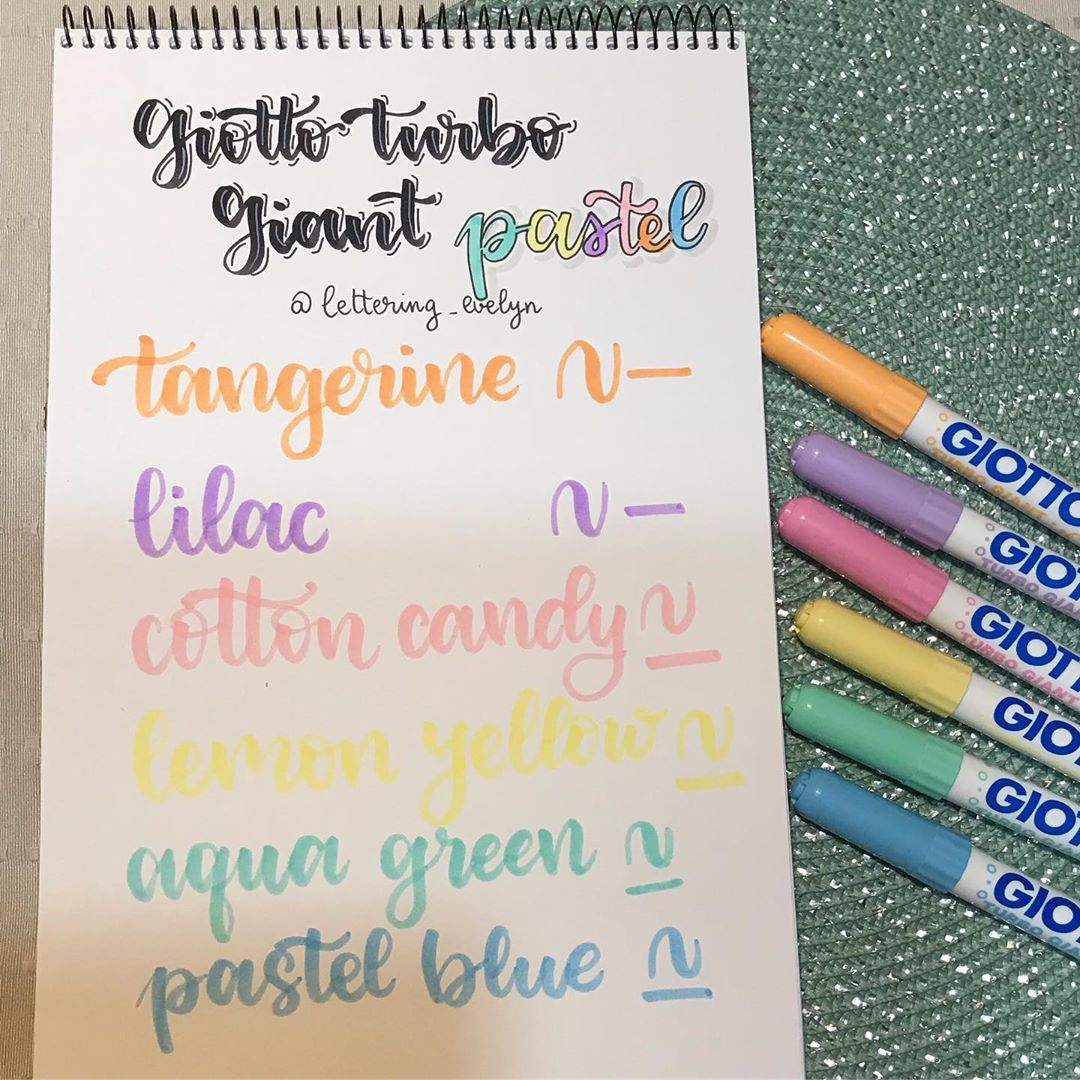 Giotto turbo
Giant pastel
@lettering_evelyn
tangerine
lilac
cotton candy
lemon yellow
aqua green
pastel blue
GIOTTO
TURBO GIANT
GIOT
TURBO GIAN
GIOTT
TURBO GIANT
GIOT
GIOT
GIOT
TURBO